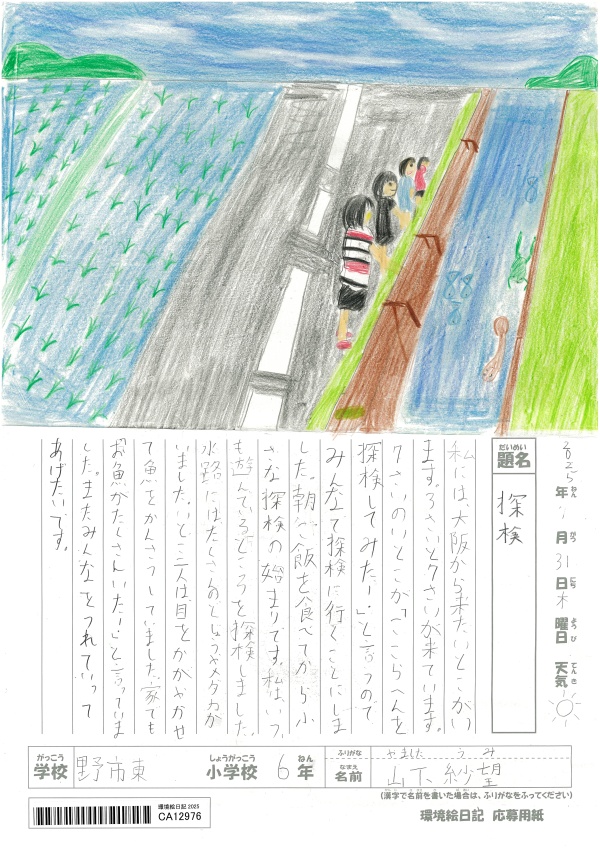 2025年7月31日木曜日 天気
題名
だいめい
探検
私には、大阪から来たいとこがい
ます。3さいと7さいが来ています。
7さいのいとこが「ここらへんを
探検してみたい」と言うので
みんなで探検に行くことにしま
した。朝ご飯を食べてから小
さな探検の始まりです。私はいつ
も遊んでいるところを探検しました。
水路にはたくさんのどじょうやメダカが
いました。いとこ二人は目をかがやかせ
て魚をかんさつしていました。家でも
お魚がたくさんいた!」と言っていま
した。またみんなをつれていって
あげたいです。
がっこう しょうがっこう ねん
学校 野市東 小学校 6年
ふりがな やました うみ
なまえ
名前 山下 紗望
(漢字で名前を書いた場合は、ふりがなをふってください)
環境絵日記 2025
CA12976
環境絵日記 応募用紙